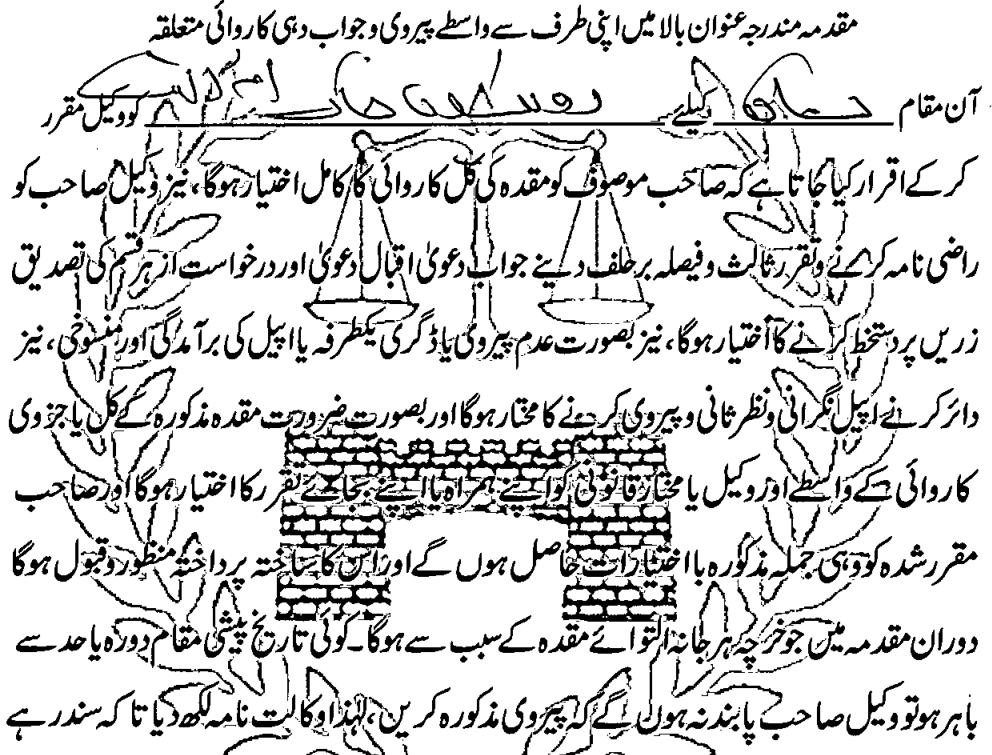 مقدمہ مندرجہ عنوان بالا میں اپنی طرف سے واسطے پیروی و جواب دہی کاروائی متعلقہ
آن مقام کیلئے کو وکیل مقرر
کر کے اقرار کیا جاتا ہے کہ صاحب موصوف کو مقدہ کی کل کاروائی کا کامل اختیار ہوگا، نیز وکیل صاحب کو
راضی نامہ کرنے و تقرر ثالث و فیصلہ بر حلف دینے جواب دعویٰ اقبال دعویٰ اور درخواست از ہر قسم کی تصدیق
زریں پر دستخط کرنے کا اختیار ہوگا، نیز بصورت عدم پیروی یا ڈگری یکطرفہ یا اپیل کی برآمدگی اور منسوخی، نیز
دائر کرنے اپیل نگرانی و نظر ثانی و پیروی کرنے کا مختار ہوگا اور بصورت ضرورت مقدہ مذکورہ کے کل یا جزوی
کاروائی کے واسطے اور وکیل یا مختار قانونی کو اپنے ہمراہ یا اپنے بجائے تقرر کا اختیار ہوگا اور صاحب
مقرر شدہ کو وہی جملہ مذکورہ با اختیارات حاصل ہوں گے اور اس کا ساختہ پرداختہ منظور و قبول ہوگا
دوران مقدمہ میں جو خرچہ ہرجانہ التوائے مقدہ کے سبب سے ہوگا۔ کوئی تاریخ پیشی مقام دورہ یا حد سے
باہر ہو تو وکیل صاحب پابند نہ ہوں گے کہ پیروی مذکورہ کریں، لہٰذا وکالت نامہ لکھ دیا تا کہ سندر ہے